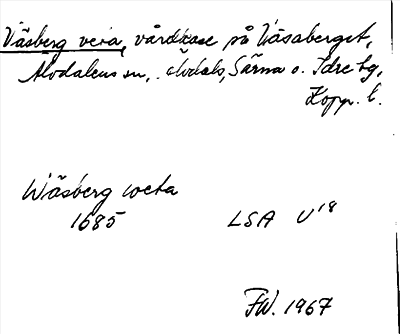 Väsberg veta, vårdkase på Väsaberget,
Älvdalens sn, Älvdals, Särna o. Idre tg,
Kopp. l.
Wäsberg weta
1685 LSA U18
FW. 1967